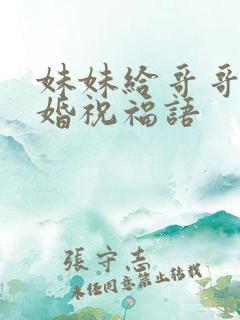 妹妹給哥哥
婚祝福語
張守志
未任同意禁止转载